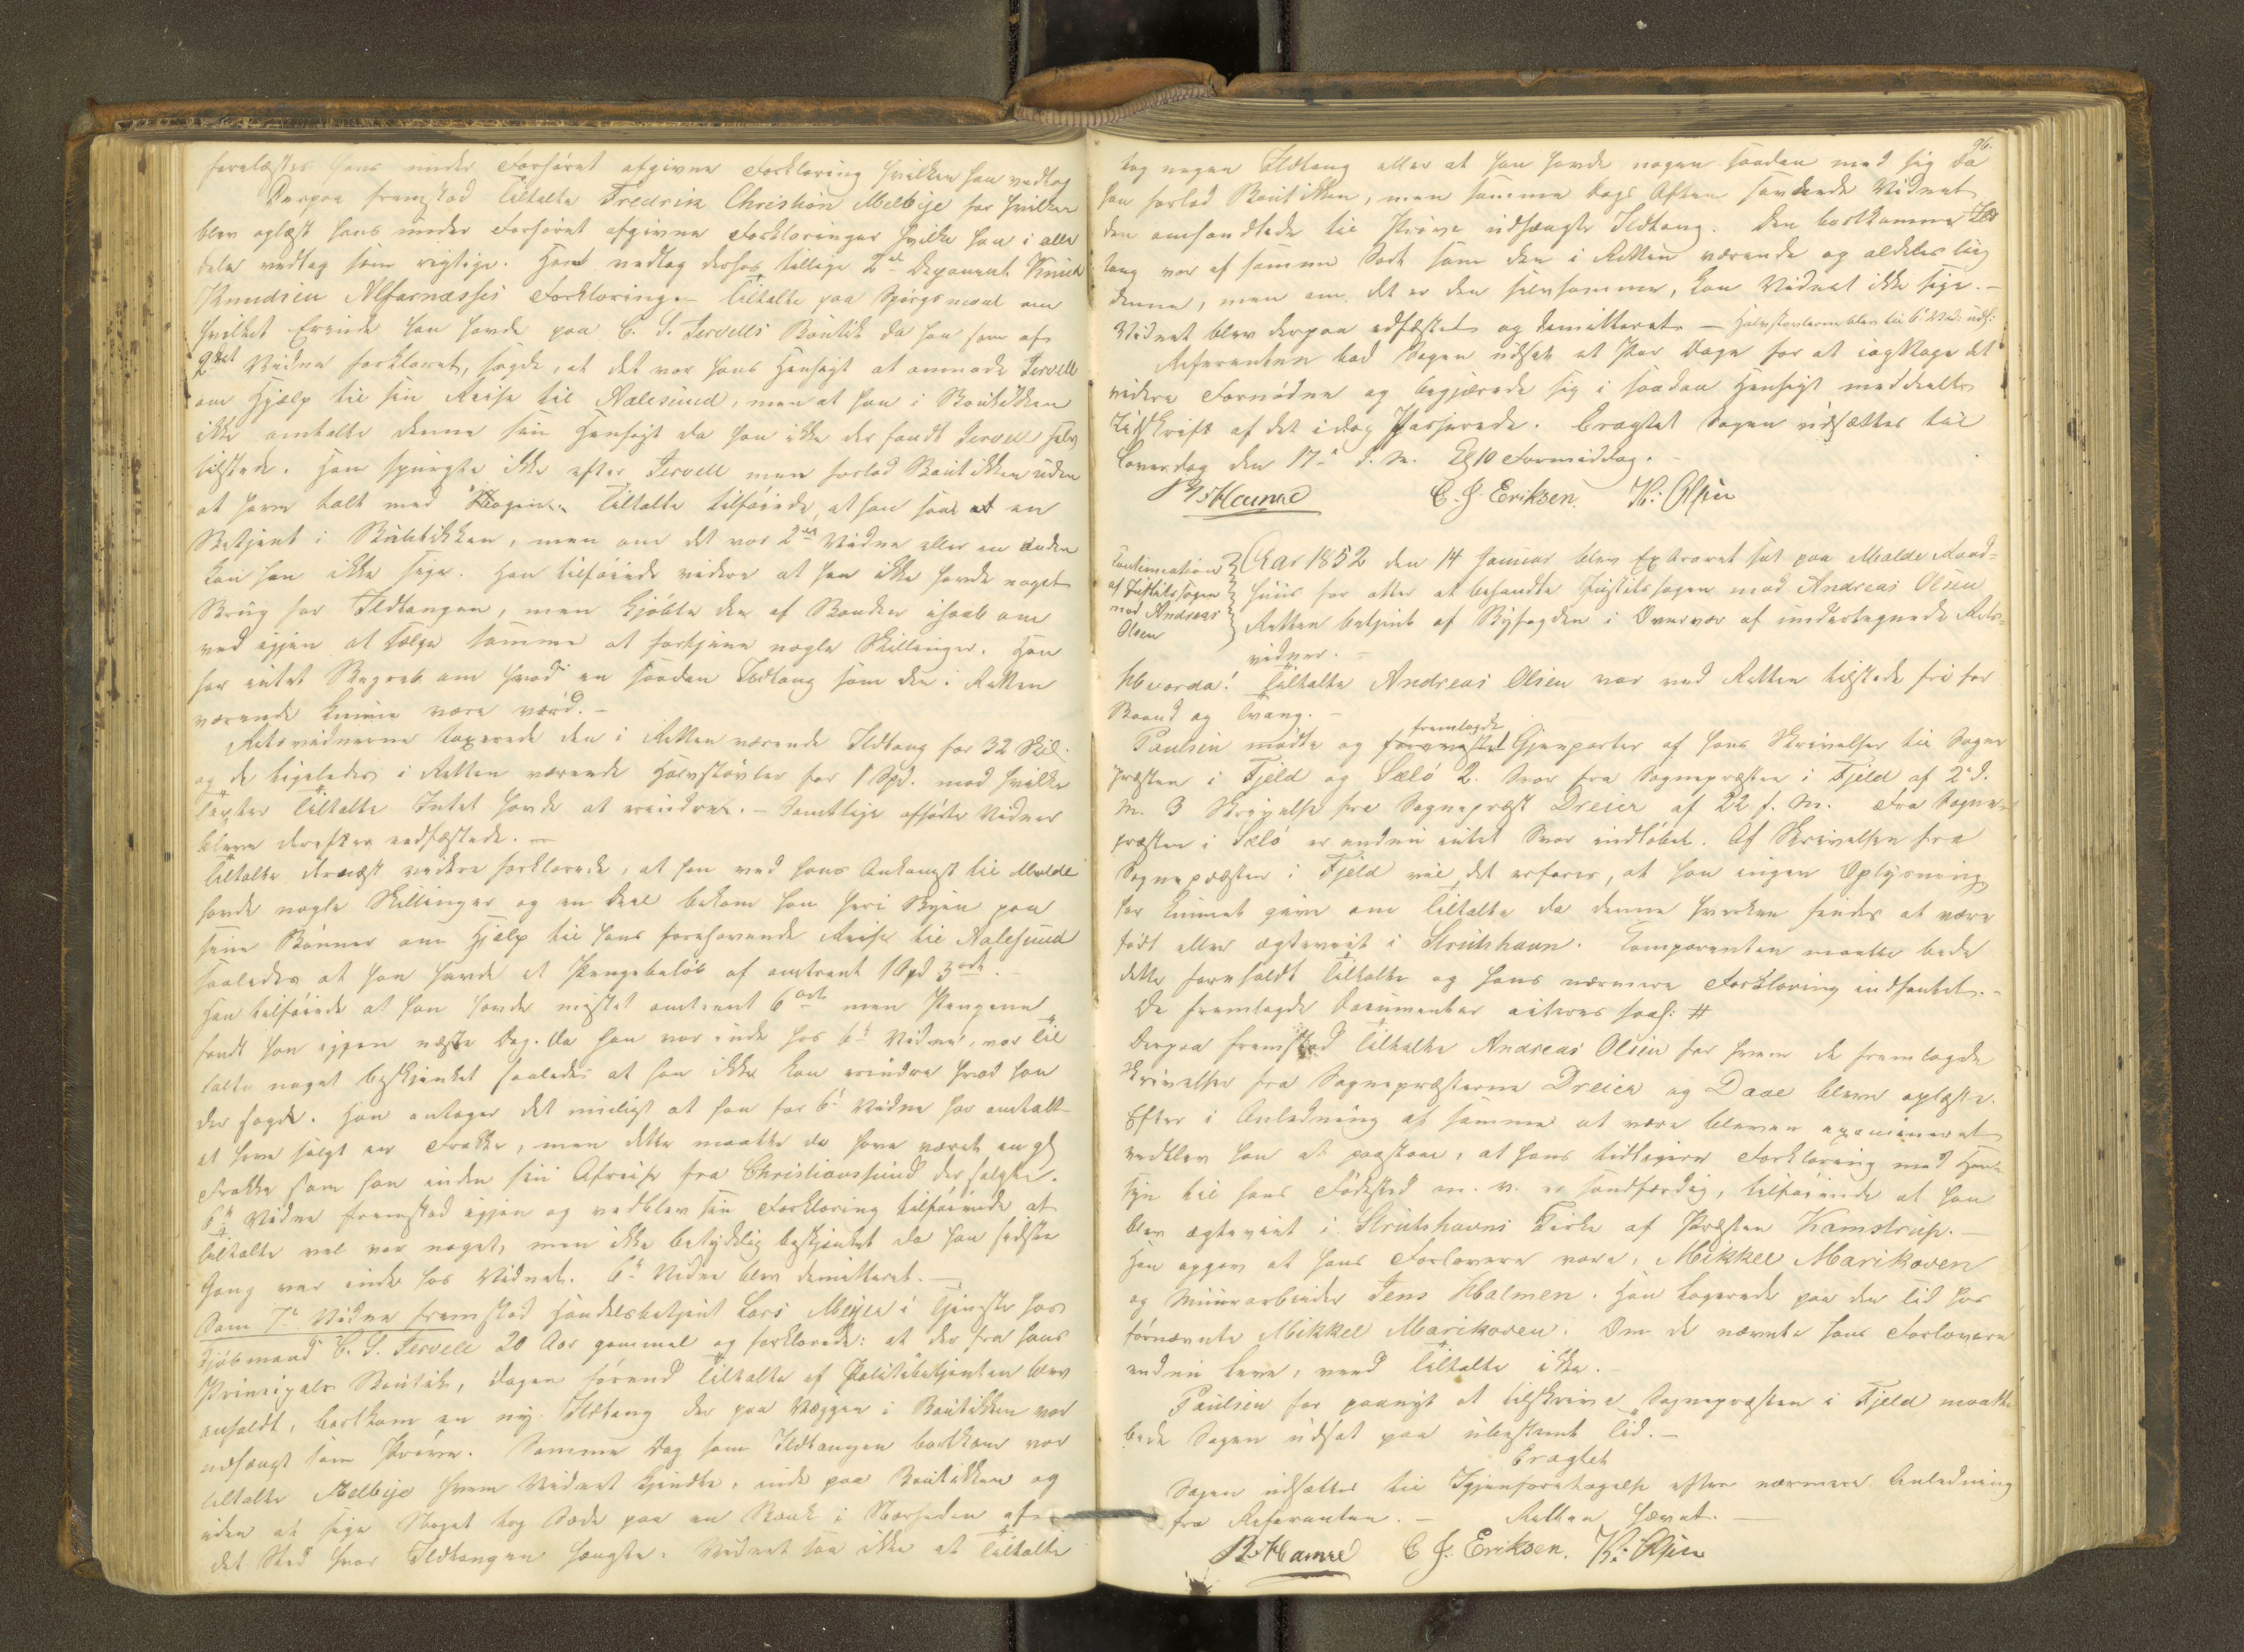 forelæstes hans under Forhøret afgivne Forklaring hvilken han vedtog
Derpaa fremstod Tiltalte Fredrik Christian Melbye for hvilken
blev oplæst hans under Forhøret afgivne Forklaringer hvilke han i alle
dele vedtog som rigtige. Han vedtog derhos tillige 2den Deponent Knud
Knudsen Alfarnæsses Forklaring. Tiltalte paa Spørgsmaal om
hvilket Erinde han havde paa C. S. Jervells Boutik da han som af
2det Vidne forklaret, sagde, at det var hans Hensigt at anmode Jervell
om Hjælp til sin Reise til Aalesund, men at han i Boutikken
ikke omtalte denne sin Hensigt da han ikke der fandt Jervell selv
tilstede. Han spurgte ikke efter Jervell men forlod Boutikken uden
at have talt med Nogen. Tiltalte tilføiede, at han saae en
Betjent i Boutikken, men om det var 2det Vidne eller en Anden
kan han ikke sige. Han tilføiede videre at han ikke havde noget
Brug for Ildtangen, men kjøbte den af Bonden ihaab om
ved igjen at sælge samme at fortjene nogle Skillinger. Han
har intet Begreb om hvad en saadan Ildtang som den i Retten
værende kunne være værd.-
Retsvidnerne taxerede den i Retten værende Ildtang for 32 Skil.
og de ligeledes i Retten værende Halvstøvler for 1 Spd. mod hvilke
Taxter Tiltalte Intet havde at erindre. - Samtlige afhørte Vidner
bleve derefter edfæstede. -
Tiltalte dernæst videre forklarede, at han ved hans Ankomst til Molde
havde nogle Skillinger og en Deel bekom han heri Byen paa
sine Bønner om Hjælp til hans forehavende Reise til Aalesund
saaledes at han havde et Pengebeløb af omtrent 1 Spd 3 ort.
Han tilføiede at han havde mistet omtrent 6 ort men Pengene
fandt han igjen næste Dag. Da han var inde hos 6te Vidne, var Til
talte noget beskjænket saaledes at han ikke kan erindre hvad han
der sagde. Han antager det muligt at han for 6te Vidne har omtalt
at have solgt en Frakke, men dette maatte da have været en gl
Frakke som han inden sin Afreise fra Christianssund der solgte.
6te Vidne fremstod igjen og vedblev sin Forklaring tilføiende at
Tiltalte vel var noget, men ikke betydelig beskjænket da han sidste
Gang var inde hos Vidnet. 6te Vidne blev demitteret.-
Som 7de Vidne fremstod Handelsbetjent Lars Meyer i Tjeneste hos
Kjøbmand C. S. Jervell 20 Aar gammel og forklarede: at der fra hans
Principals Boutik, dagen førend Tiltalte af Politibetjenten blev
anholdt, bortkom en ny Ildtang der paa Væggen i Boutikken var
udhængt som Prøve. Samme Dag som Ildtangen bortkom var
Tiltalte Melbye hvem Vidnet kjendte, inde paa Boutikken og
uden at sige Noget tog Sæde paa en Bænk i Nærheden af
det Sted hvor Ildtangen hængte. Vidnet saa ikke at Tiltalte
96.
tog nogen Ildtang eller at han havde nogen saadan med sig da
han forlod Boutikken, men samme Dags Aften savnede Vidnet
den omhandlede til Prøve udhængte Ildtang. Den bortkomne Ild
tang var af samme Sort som den i Retten værende og aldeles lig
denne, men om det er den selvsamme, kan Vidnet ikke sige.-
Vidnet blev derpaa edfæstet og demitteret. - Halvstøvlerne blev til 6te Vid: udl:
Referenten bad Sagen udsat et Par Dage for at iagttage det
videre Fornødne og begjærede sig i saadan Hensigt meddeelt
Udskrift af det idag Passerede. Eragtet Sagen udsættes til
Løverdag den 17de d. M. Kl 10 Formiddag.
B. Hamre C. J. Eriksen. K: Olsen
Continuation
af Justitssagen
mod Andreas
Olsen
Aar 1852 den 14 Januar blev Extraret sat paa Molde Raad-
huus for atter at behandle Justitssagen mod Andreas Olsen
Retten betjent af Byfogden i Overvær af undertegnede Rets-
vidner.-
Hvorda! Tiltalte Andreas Olsen var ved Retten tilstede fri for
Baand og Tvang.-
fremlagde
Paulsen mødte og Gjenparter af hans Skrivelser til Sogne
præsten i Fjeld og Sælø 2. Svar fra Sognepræsten i Fjeld af 2 d.
M. 3 Skrivelse fra Sognepræst Dreier af 22 f. M. Fra Sogne-
præsten i Sælø er endnu intet Svar indløbet. Af Skrivelsen fra
Sognepræsten i Fjeld vil det erfares, at han ingen Oplysning
har kunnet give om Tiltalte da denne hverken findes at være
født eller ægteviet i Strutshavn. Comparenten maatte bede
dette foreholdt Tiltalte og hans nærmere Forklaring indhentet.-
De fremlagde Documenter acteres saal: #
Derpaa fremstod Tiltalte Andreas Olsen for hvem de fremlagde
Skrivelser fra Sognepræsterne Dreier og Daae bleve oplæste.
Efter i Anledning af samme at være bleven examineret
vedblev han at paastaae, at hans tidligere Forklaring med Hen-
syn til hans Fødested m. v. er sandfærdig, tilføiende at han
blev ægteviet i Strutshavns Kirke af Præsten Kamstrup.-
Han opgav at hans Forlovere vare, Mikkel Marikoven
og Muurarbeider Jens Holmen. Han logerede paa den tid hos
førnævnte Mikkel Marikoven. Om de nævnte hans Forlovere
endnu leve, veed Tiltalte ikke.-
Paulsen for paanyt at tilskrive Sognepræsten i Fjeld maatte
bede Sagen udsat paa ubestemt Tid.-
Eragtet
Sagen udsættes til Igjenforetagelse efter nærmere Anledning
fra Referenten. - Retten hævet. -
B. Hamre C J. Eriksen. K: Olsen